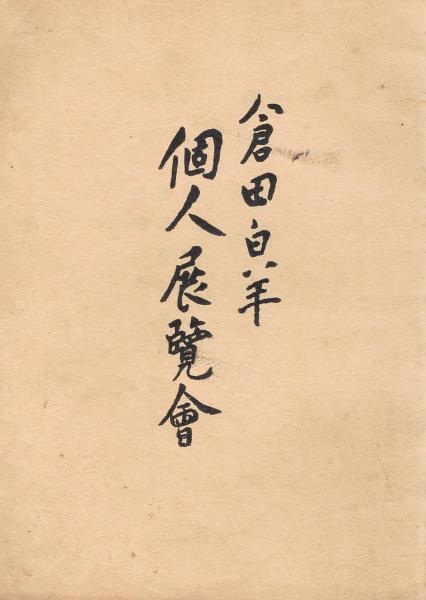 倉田白羊
個人展覽會